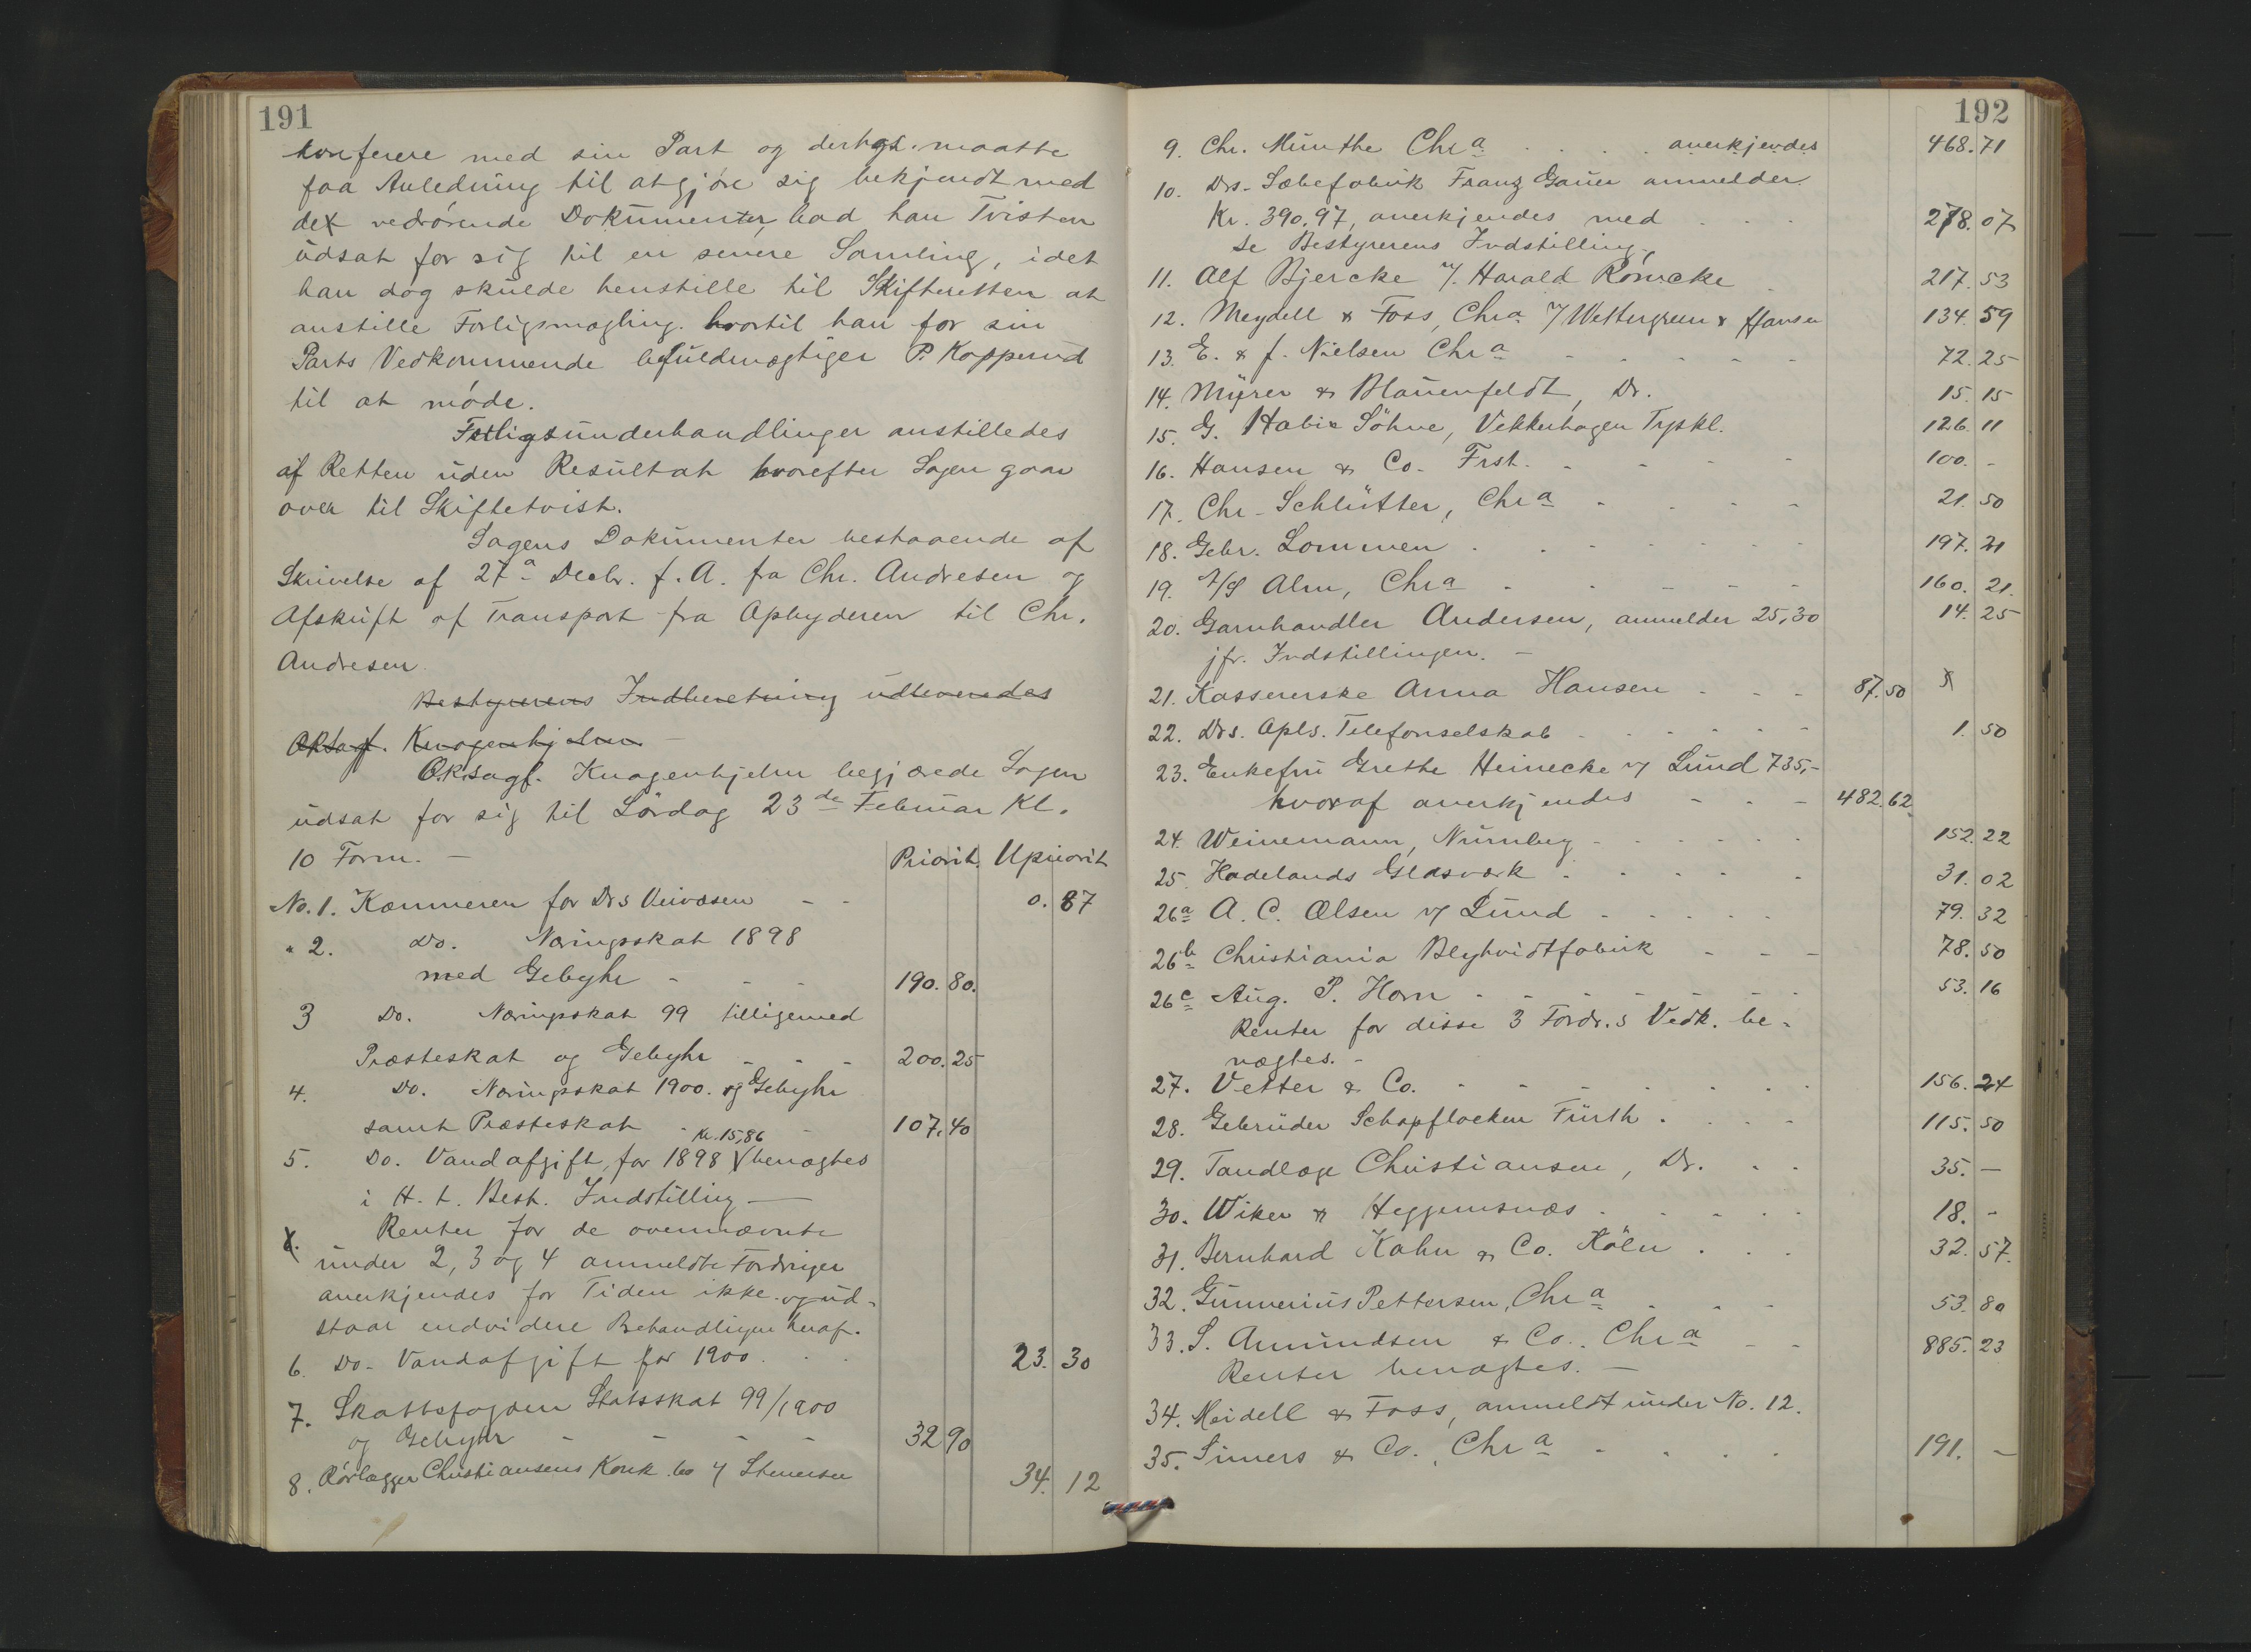 191
konferere med sin Part og derhos maatte
faa Anledning til at gjøre sig bekjendt med
det vedrørende Dokumenter, bad han Tvisten
udsat for sig til en senere Samling, idet
han dog skulde henstille til Skifteretten at
anstille Forligsmægling. hvortil han for sin
Parts Vedkommende befuldmægtiger P. Kopperud
til at møde.
Forligsunderhandlinger anstilledes
af Retten uden Resultat hvorefter Sagen gaar
over til Skiftetvist.
Sagens Dokumenter bestaaende af
Skrivelse af 27de Decbr. f. A. fra Chr. Andresen og
Afskrift af Transport fra Opbyderen til Chr.
Andresen.
Bestyrerens Indberetning udleveredes
O.R.Sagf. Knagenhjelm
O.R.Sagf. Knagenhjelm begjærede Sagen
udsat for sig til Lørdag 23de Februar Kl.
10 Form. —
Priorit. Upriorit
No. 1. Kæmneren for Drs Veivæsen - - 0. 87
" 2. Do. Næringsskat 1898
med Gebyhr - - - 190. 80.
3 Do. Næringsskat 99 tilligemed
Præsteskat og Gebyhr - - - 200. 25
4. Do. Næringsskat 1900. og Gebyhr
samt Præsteskat - - 107. 40
Kr. 15,86
5. Do. Vandafgift, for 1898 V benægtes
i H. t. Best. Indstilling —
X. Renter for de ovennævnte
under 2, 3 og 4 anmeldte Fordringer
anerkjendes for Tiden ikke. og ud-
staar endvidere Behandlingen heraf.
6. Do - Vandafgift for 1900 . . . 23. 30
7. Skattefogden Statsskat 99/1900
og Gebyhr - - - - 32 90
8. Rørlægger Christiansens Konk. bo v/ Stenersen 34. 12
192
9. Chr. Münthe Chr a . . . . anerkjendes 468. 71
10. Drs. Sæbefabrik Franz Gauer anmelder
Kr. 390.97, anerkjendes med . . . 278. 07
se Bestyrerens Indstilling -
11. Alf Bjercke v/. Harald Römcke . 217. 53
12. Meydell & Foss, Chr a v/ Wettergreen & Hansen 134. 59
13. E. & J. Nielsen Chr a - - - - - 72. 25
14. Myrer & Blauenfeldt, Dr. 15. 15
15. G. Habie Söhne, Vekkerhagen Tyskl. 126. 11
16. Hansen & Co. Frst. - - - - 100. -
17. Chr. Schlütter, Chr a - - - - 21. 50
18. Gebr. Lommen . . - - - - - 197. 21
19. A/S Alm, Chr a - - - - - 160. 21.
20. Garnhandler Andersen, anmelder 25,30 14. 25
jfr. Indstillingen. —
21. Kassererske Anna Hansen - - - 87. 50 X
22. Drs. Opls. Telefonselskab - - - - - 1. 50
23. Enkefru Grethe Heinecke v/ Lund 735,-
hvoraf anerkjendes - - - 482. 62
24. Weinemann, Nürnberg - - - - - 152. 22
25. Hadelands Glasværk - - - - - 31. 02
26a A. C. Olsen v/ Lund - - - - - 79. 32
26b Christiania Blyhvidtfabrik - - - 78. 50
26c Aug. P. Horn - - - - - - - 53. 16
Renter for disse 3 Fordr.s Vedk. be-
nægtes. -
27. Vetter & Co. - - - - - - 156. 24
28. Gebrüder Schopflocken Fürth . . . - 115. 50
29. Tandlæge Christiansen, Dr. . . 35. —
30. Wiker & Heggemsnæs . - - - - 18. -
31. Bernhard Kahn & Co. Köln . . . 32. 57.
32. Gunnerius Pettersen, Chr a . - - 53. 80
33. S. Amundsen & Co. Chr a - - 885. 23
Renter benægtes. —
34. Meidell & Foss, anmeldt under No. 12.
35. Simers & Co., Chr a - - - - 191. -